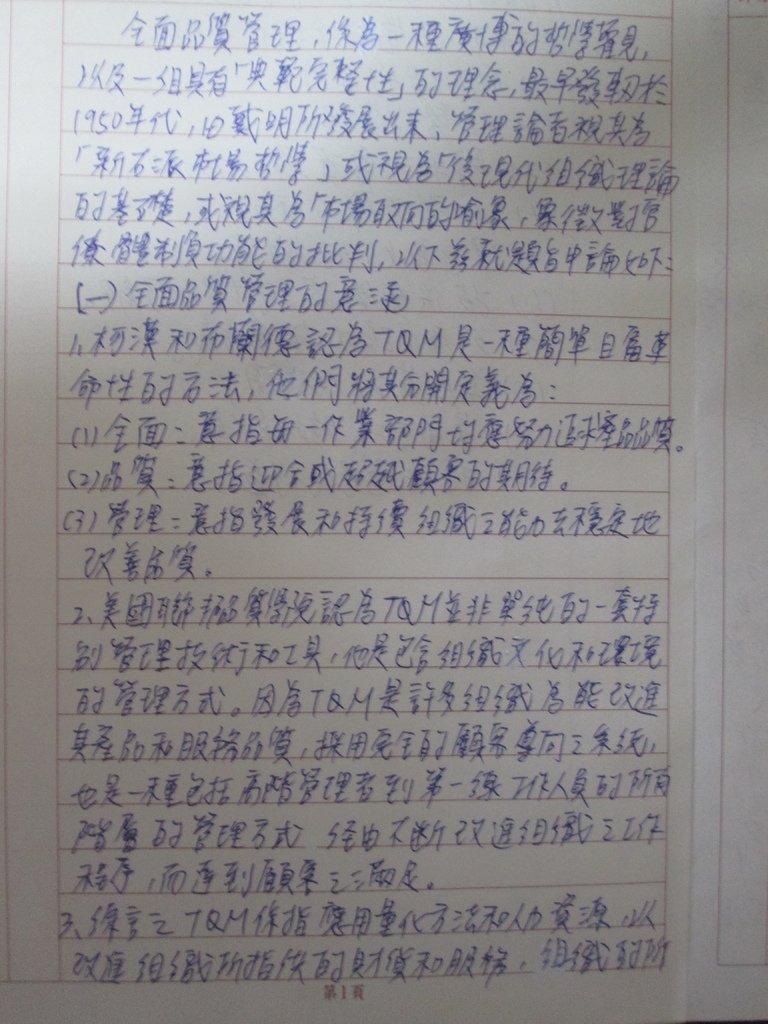 全面品質管理，係為一種廣博的哲學看見，
以及一組具有「典範完整性」的理念，最早發軔於
1950年代，由戴明所發展出來，管理論者視其為
「新右派市場哲學」或視為「後現代組織理論
的基礎，或視其為「市場取向的喻象，象徵對官
僚體制負功能的批判，以下茲就題旨申論如下：
(一)全面品質管理的意涵
1.柯漢和布蘭德認為TQM是一種簡單且富革
命性的方法，他們將其分開定義為：
(1)全面：意指每一作業部門均應努力追求產品品質。
(2)品質：意指迎合或超越顧客的期待。
(3)管理：意指發展和持續組織之能力去穩定地
改善品質。
2.美國聯邦品質學院認為TQM並非單純的一套特
別管理技術和工具，他是包含組織文化和環境
的管理方式。因為TQM是許多組織為能改進
其產品和服務品質，採用完全的顧客導向之系統，
也是一種包括高階管理者到第一線工作人員的所有
階層的管理方式 經由不斷改進組織之工作
程序，而達到顧客之滿足。
3.綜言之TQM係指應用量化方法和人力資源，以
改進組織所提供的財貨和服務，組織的所
第1頁